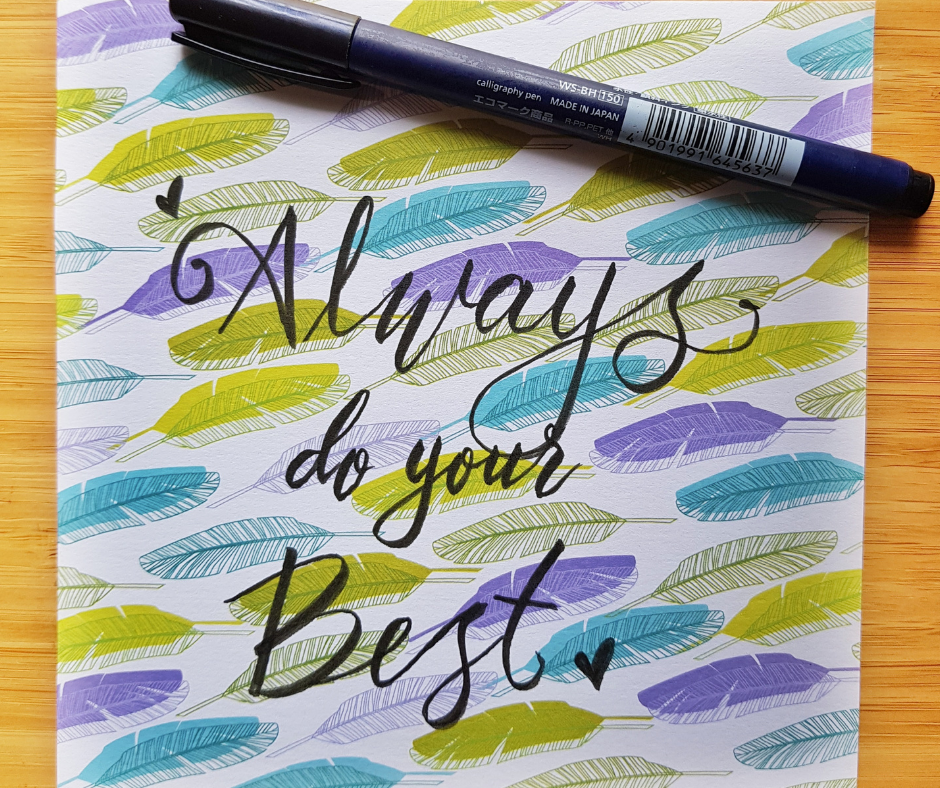 WS-BH 150
calligraphy pen MADE IN JAPAN
エコマーク商品
R-PP,PET 他
4 901991 645637
Always
do your
Best